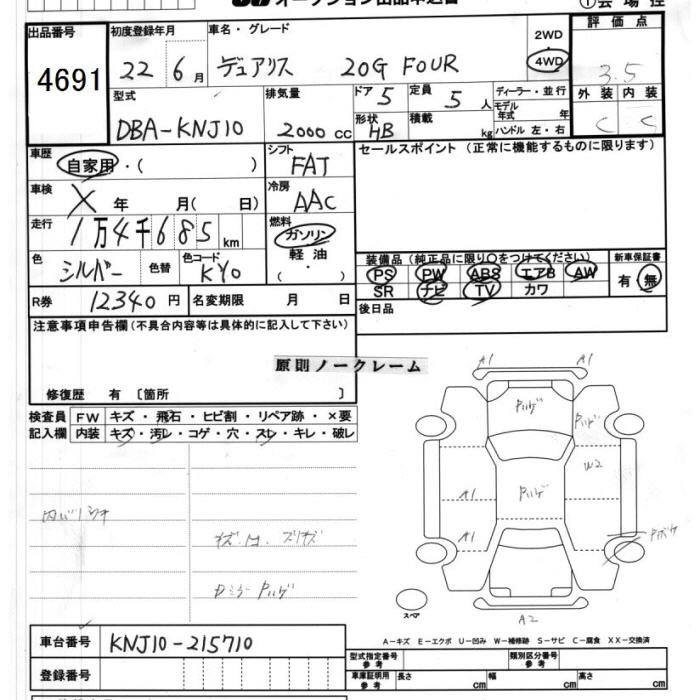 出品番号
4691
初度登録年月
22 6月
車名・グレード
デュアリス 20G FOUR
2WD
4WD
評価点
3.5
型式
DBA-KNJ10
排気量
2000 cc
ドア 5
定員 5 人
形状 HB
積載 kg
ディーラー・並行
モデル年式 年
ハンドル 左・右
外装 内装
C C
車歴
自家用・( )
シフト
FAT
セールスポイント (正常に機能するものに限ります)
車検
X 年 月( 日)
冷房
AAC
走行
1万4千685 km
燃料
ガソリン
軽油
( ・ )
色
シルバー
色替
色コード
KY0
装備品 (純正品に限り○をつけてください)
PS PW ABS エアB AW
SR ナビ TV カワ
新車保証書
有・無
R券 12340 円
名変期限 月 日
後日品
注意事項申告欄 (不具合内容等は具体的に記入して下さい)
原則ノークレーム
修復歴 有 〔箇所 〕
検査員
記入欄
FW キズ・飛石・ヒビ割・リペア跡・×要
内装 キズ・汚レ・コゲ・穴・スレ・キレ・破レ
A1 A1
W2
A1
A1
A2
スペア
車台番号 KNJ10-215710
登録番号
A-キズ E-エクボ U-凹み W-補修跡 S-サビ C-腐食 XX-交換済
型式指定番号 参考
類別区分番号 参考
車庫証明用 参考
長さ cm
幅 cm
高さ cm